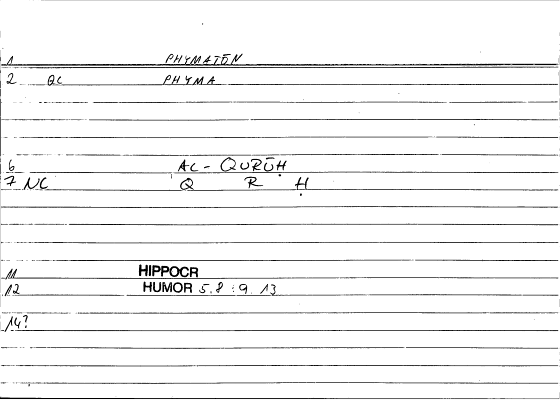 1 PHYMATŌN
2 QC PHYMA
6 AL- QURŪḤ
7 NC Q R Ḥ
11 HIPPOCR
12 HUMOR 5.8 : 9. 13
14?